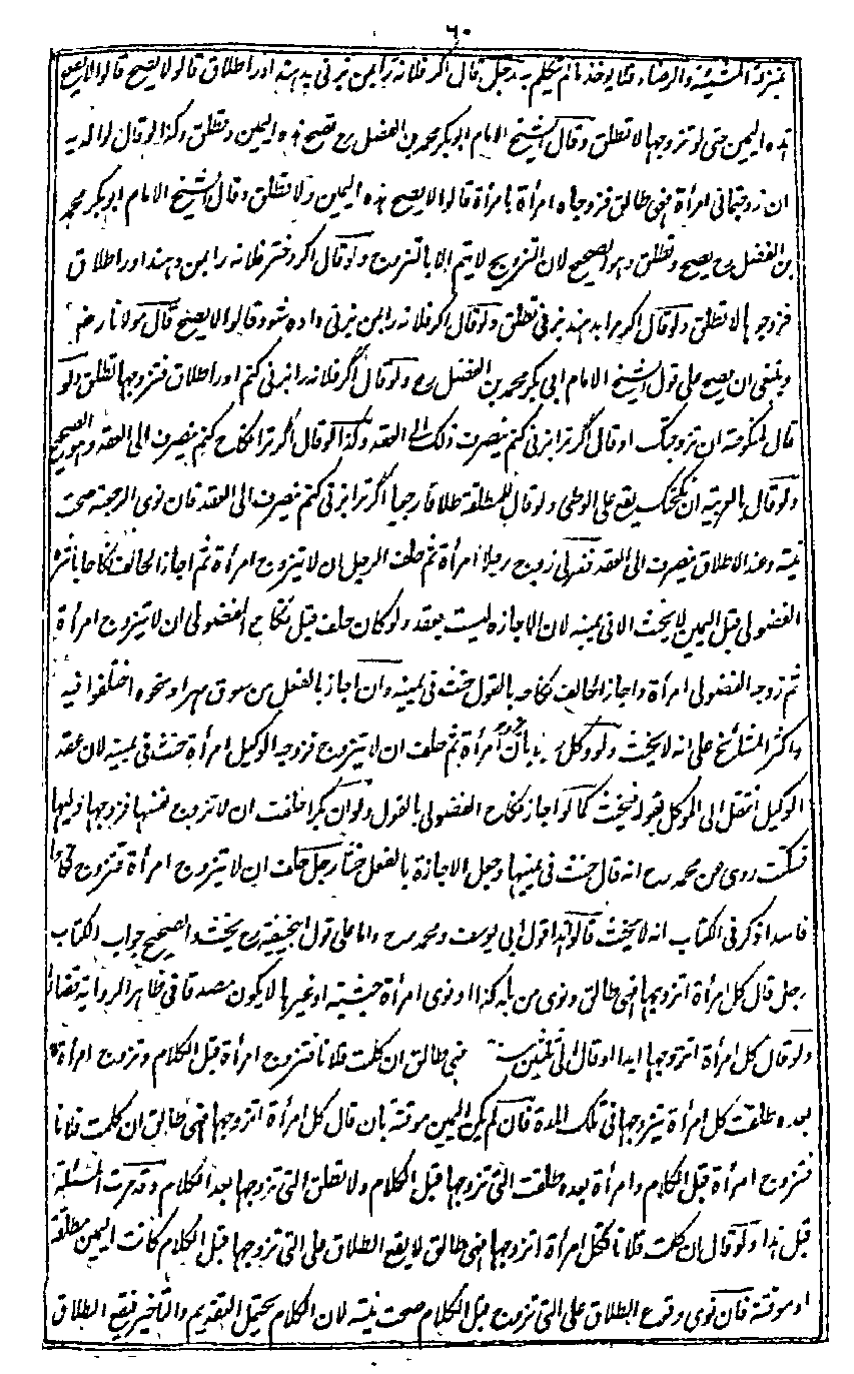 ٦٠
بمنزلة المشيئة والرضاء فلا يؤخذ ما لم يتكلم به رجل قال اگر فلانه را بمن بزنى بدهند او را طلاق قالوا لا يصح قالوا لا يصح
هذه اليمين حتى لو تزوجها لا تطلق وقال الشيخ الامام ابو بكر محمد بن الفضل رح تصح هذه اليمين وتطلق وكذا لو قال لوالديه
ان زوجتمانى امرأة فهى طالق فزوجاه امرأة بامرأة قالوا لا يصح هذه اليمين ولا تطلق وقال الشيخ الامام ابو بكر محمد
بن الفضل رح يصح وتطلق وهو الصحيح لان التزويج لا يتم الا بالتزوج ولو قال اگر دختر فلانه را بمن دهند او را طلاق
فزوجها لا تطلق ولو قال اگر مرا بدهند بزنى تطلق ولو قال اگر فلانه را بمن بزنى داده شود قالوا لا يصح قال مولانا رضى
وينبغى ان يصح على قول الشيخ الامام ابى بكر محمد بن الفضل رح ولو قال اگر فلانه را بزنى كنم او را طلاق فتزوجها تطلق ولو
قال لمنكوحته ان تزوجتك او قال اگر ترا بزنى كنم ينصرف ذلك الى العقد وكذا لو قال اگر ترا نكاح كنم ينصرف الى العقد وهو الصحيح
ولو قال بالعربية ان نكحتك يقع على الوطى ولو قال للمطلقة طلاقا رجعيا اگر ترا بزنى كنم ينصرف الى العقد فان نوى الرجعة صحت
نيته وعند الاطلاق ينصرف الى العقد فضولى زوج رجلا امرأة ثم حلف الرجل ان لا يتزوج امرأة ثم اجاز الحالف نكاحا باشره
الفضولى قبل اليمين لا يحنث الا فى يمينه لان الاجازة ليست بعقد ولو كان حلف قبل نكاح الفضولى ان لا يتزوج امرأة
ثم زوجه الفضولى امرأة واجاز الحالف نكاحه بالقول حنث فى يمينه وان اجاز بالفعل من سوق مهر او نحوه اختلفوا فيه
واكثر المشائخ على انه لا يحنث ولو وكل بان امرأة ثم حلف ان لا يتزوج فزوجه الوكيل امرأة حنث فى يمينه لان عقد
الوكيل انتقل الى الموكل بقوله فيحنث كما لو اجاز نكاح الفضولى بالقول ولو ان بكرا حلفت ان لا تزوج نفسها فزوجها وليها
فسكتت روى عن محمد رح انه قال حنث فى يمينها وجعل الاجازة بالفعل حنثا رجل حلف ان لا يتزوج امرأة فتزوج نكاحا
فاسدا ذكر فى الكتاب انه لا يحنث قالوا هذا قول ابى يوسف ومحمد رح واما على قول ابيحنيفة رح يحنث والصحيح جواب الكتاب
رجل قال كل امرأة اتزوجها فهى طالق ونوى من بلد كذا او نوى امرأة حبشية او غيرها لا يكون مصدقا فى ظاهر الرواية قضاء
ولو قال كل امرأة اتزوجها ابدا او قال الى ثلثين سنة فهى طالق ان كلمت فلانا فتزوج امرأة قبل الكلام وتزوج امرأة
بعده طلقت كل امرأة يتزوجها فى تلك المدة فان لم يكن اليمين موقتة بان قال كل امرأة اتزوجها فهى طالق ان كلمت فلانا
فتزوج امرأة قبل الكلام وامرأة بعده طلقت التى تزوجها قبل الكلام ولا تطلق التى تزوجها بعد الكلام وقد مرت المسئلة
قبل هذا ولو قال ان كلمت فلانا فكل امرأة اتزوجها فهى طالق لا يقع الطلاق على التى تزوجها قبل الكلام كانت اليمين مطلقة
او موقتة فان نوى وقوع الطلاق على التى تزوج قبل الكلام صحت نيته لان الكلام يحتمل التقديم والتأخير فيقع الطلاق